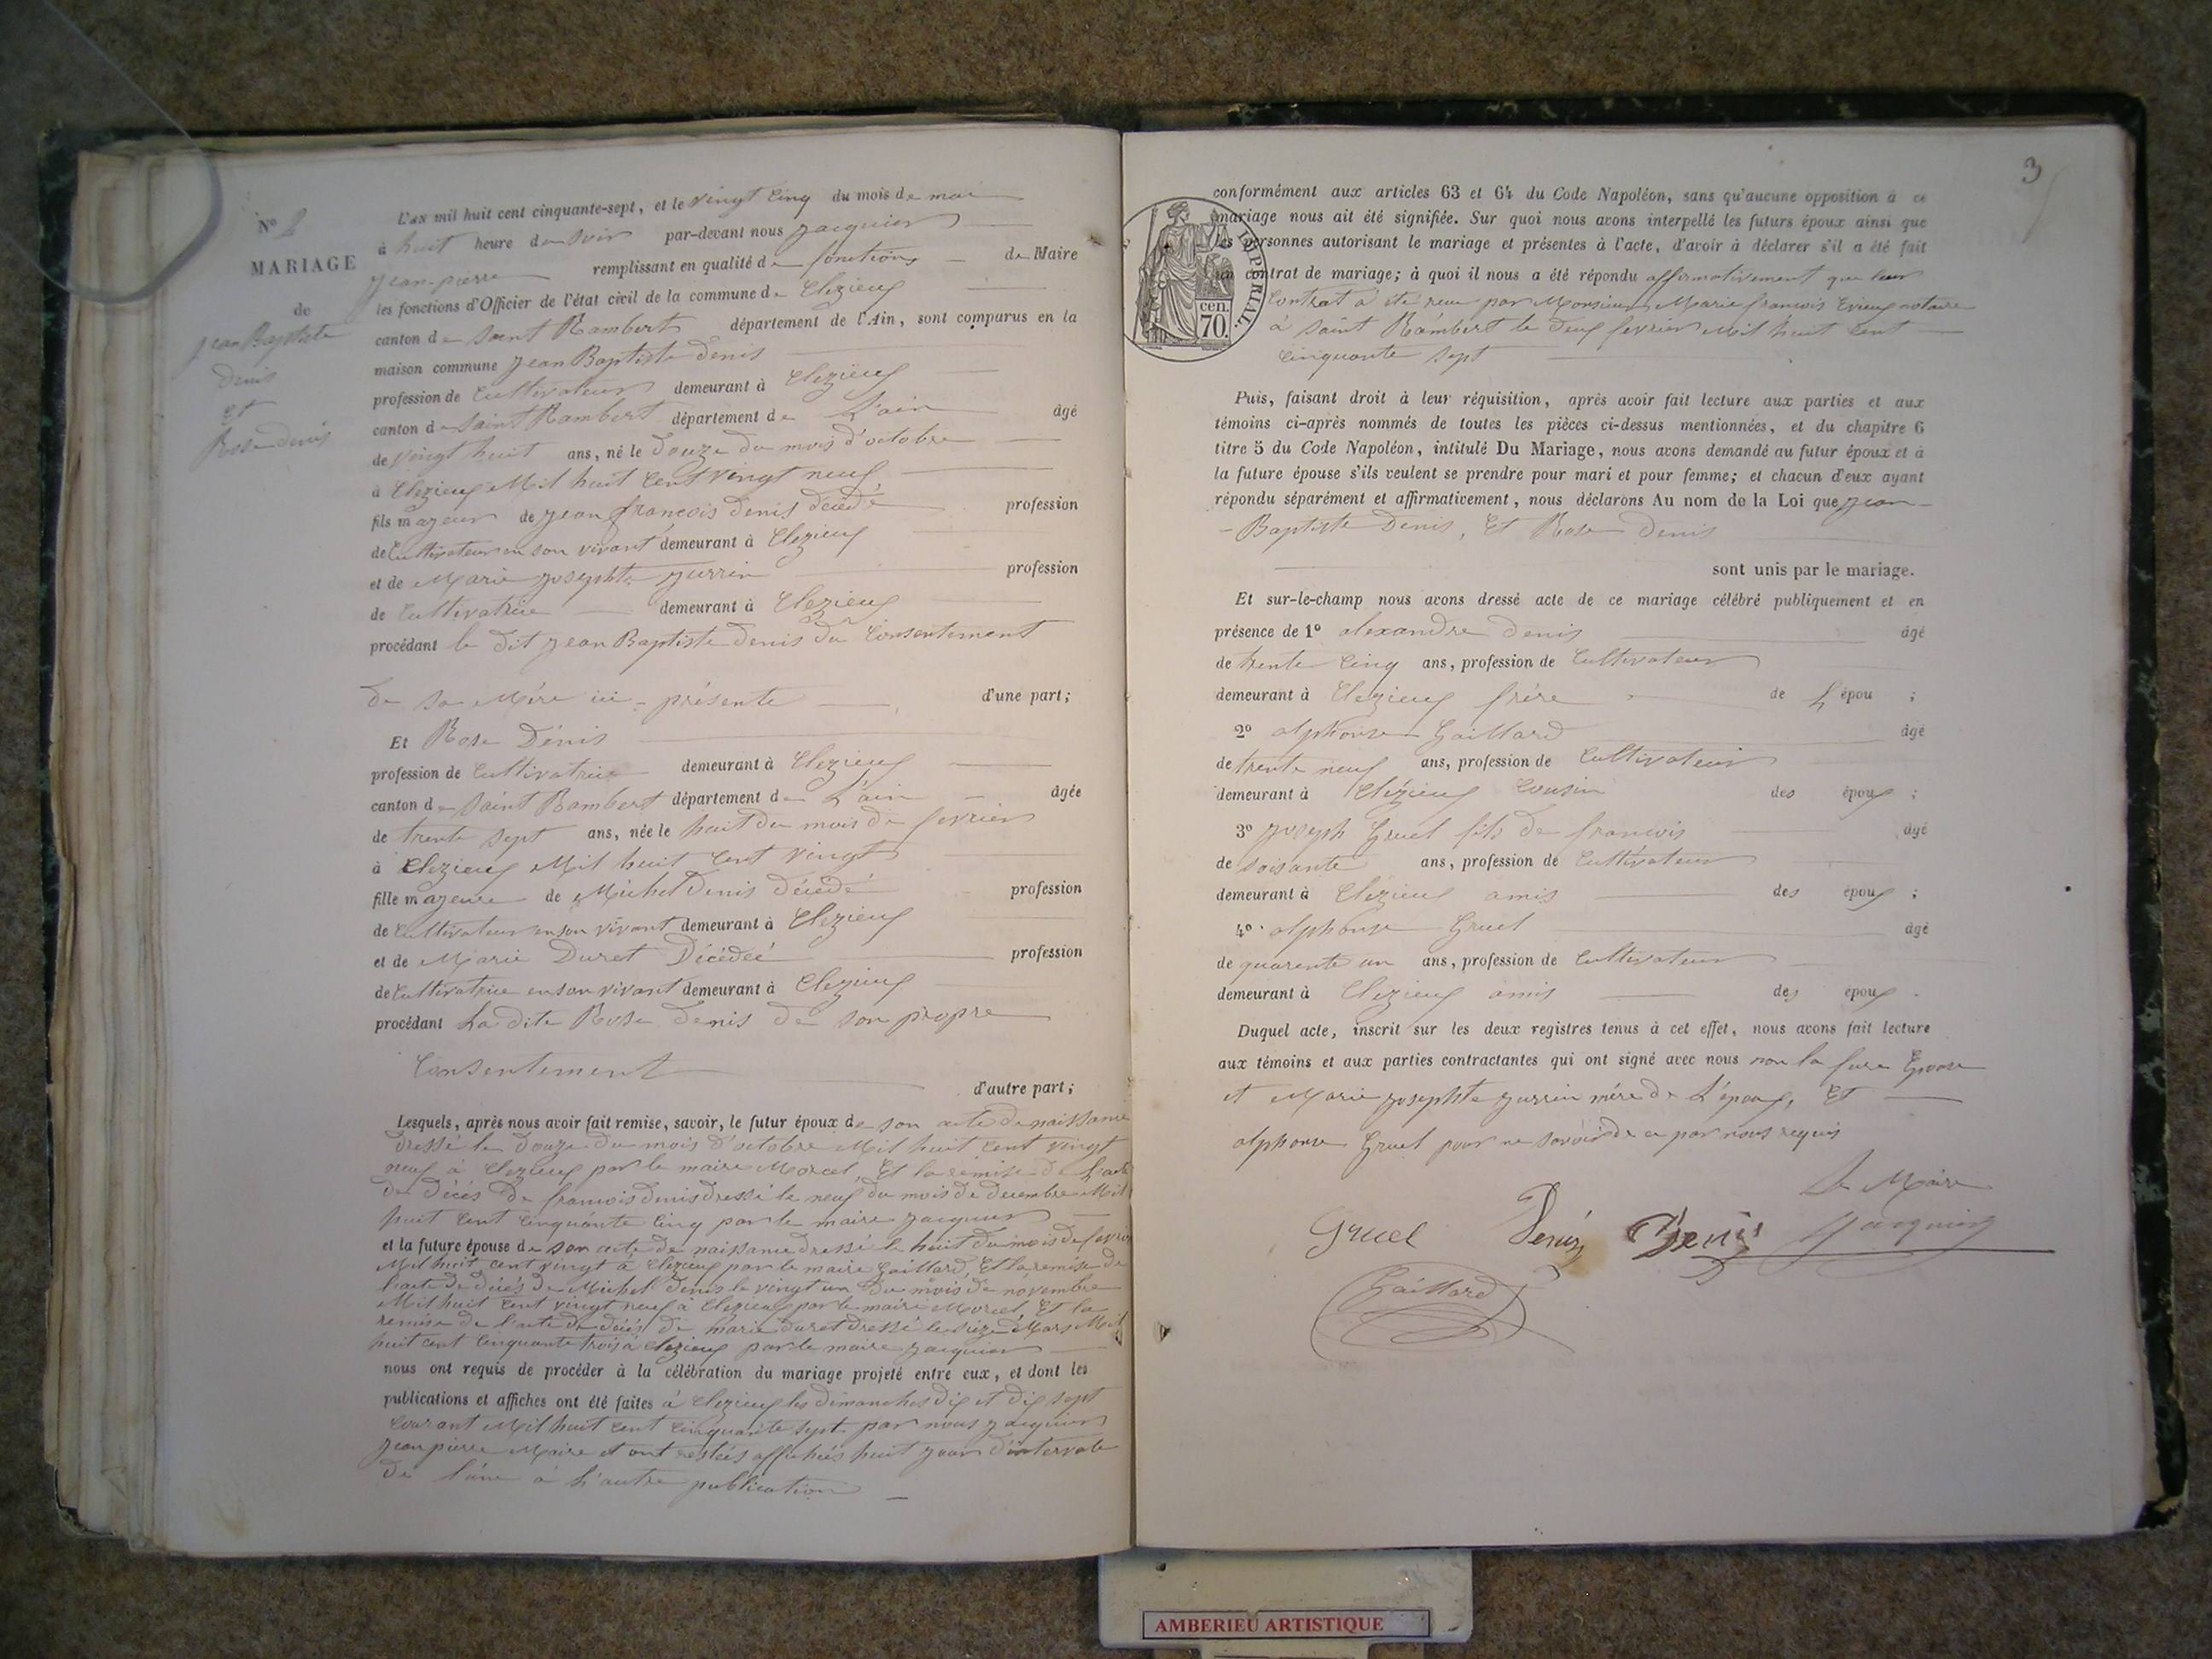 N° 2
MARIAGE
de
Jean Baptiste
Denis
Et
Rose Denis
L'an mil huit cent cinquante-sept, et le vingt cinq du mois de mai
à huit heure du soir par-devant nous Jacquier
Jean-pierre remplissant en qualité de fonctions de Maire
les fonctions d'Officier de l'état civil de la commune de Clezieux
canton de Saint Rambert département de l'Ain, sont comparus en la
maison commune Jean Baptiste Denis
profession de Cultivateur demeurant à Clezieux
canton de Saint Rambert département de L'ain âgé
de vingt huit ans, né le Douze du mois d'octobre
à Clezieux Mil huit Cent vingt neuf
fils majeur de Jean françois Denis décédé profession
de Cultivateur en son vivant demeurant à Clezieux
et de Marie Josephte Jurrin profession
de Cultivatrice demeurant à Clezieux
procédant le dit Jean Baptiste Denis du Consentement
de sa Mére ici-présente d'une part;
Et Rose Denis
profession de Cultivatrice demeurant à Clezieux
canton de Saint Rambert département de L'ain âgée
de trente sept ans, née le huit du mois de fevrier
à Clezieux Mil huit Cent vingt
fille majeure de Michel Denis Décédé profession
de Cultivateur en son vivant demeurant à Clezieux
et de Marie Duret Décédée profession
de Cultivatrice en son vivant demeurant à Clezieux
procédant La dite Rose Denis de son propre
Consentement
d'autre part;
Lesquels, après nous avoir fait remise, savoir, le futur époux de son acte de naissance
dressé le Douze du mois d'octobre Mil huit Cent vingt
neuf à Clezieux par le maire Morcel, Et la remise de L'acte
de décés de francois Denis dressé le neuf du mois de decembre Mil
huit Cent Cinquante Cinq par le maire Jacquier
et la future épouse de son acte de naissance dressé le huit du mois de fevrier
Mil huit Cent vingt à Clezieux par le maire Gaillard, Et la remise de
l'acte de décés de Michel Denis le vingt un du mois de novembre
Mil huit Cent vingt neuf à Clezieux par le maire Morcel, Et la
remise de l'acte de décés de Marie Duret dressé le seize Mars Mil
huit cent Cinquante trois à Clezieux par le maire Jacquier
nous ont requis de procéder à la célébration du mariage projeté entre eux, et dont les
publications et affiches ont été faites à Clezieux les dimanches dix et dix sept
Courant Mil huit Cent Cinquante sept par nous Jacquier
Jean pierre Maire et ont restées affichées huit jour d'intervale
de l'une à L'autre publication
3
conformément aux articles 63 et 64 du Code Napoléon, sans qu'aucune opposition à ce
mariage nous ait été signifiée. Sur quoi nous avons interpellé les futurs époux ainsi que
les personnes autorisant le mariage et présentes à l'acte, d'avoir à déclarer s'il a été fait
un contrat de mariage; à quoi il nous a été répondu affirmativement que leur
Contrat a été reçu par Monsieur Marie françois notaire
à Saint Rambert le Deux fevrier Mil huit Cent
Cinquante sept
IMPERIAL.
cen.
70.
Puis, faisant droit à leur réquisition, après avoir fait lecture aux parties et aux
témoins ci-après nommés de toutes les pièces ci-dessus mentionnées, et du chapitre 6
titre 5 du Code Napoléon, intitulé Du Mariage, nous avons demandé au futur époux et à
la future épouse s'ils veulent se prendre pour mari et pour femme; et chacun d'eux ayant
répondu séparément et affirmativement, nous déclarons Au nom de la Loi que Jean-
-Baptiste Denis, Et Rose Denis
sont unis par le mariage.
Et sur-le-champ nous avons dressé acte de ce mariage célébré publiquement et en
présence de 1° alexandre Denis âgé
de trente Cinq ans, profession de Cultivateur
demeurant à Clezieux frère de L'épou ;
2° alphonse Gaillard âgé
de trente neuf ans, profession de Cultivateur
demeurant à Clézieux Cousin des époux ;
3° Joseph Gruel fils de francois âgé
de soisante ans, profession de Cultivateur
demeurant à Clézieux amis des époux ;
4° alphonse Gruel âgé
de quarente un ans, profession de Cultivateur
demeurant à Clezieux amis des époux .
Duquel acte, inscrit sur les deux registres tenus à cet effet, nous avons fait lecture
aux témoins et aux parties contractantes qui ont signé avec nous non la Epouse
et Marie Josephte Jurrin mére de L'époux, Et
alphonse Gruel pour ne savoir de ce par nous requis
Le Maire
Gruel Denis Denis Jacquier
Gaillard
AMBERIEU ARTISTIQUE